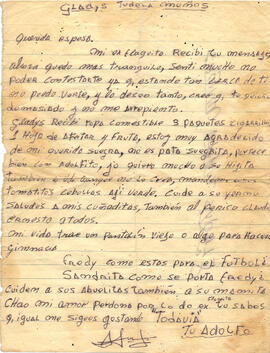 GLADYS
Querida esposa.
Mi ex flaquita. Recibi tu mensage,
ahora quedo mas tranquilo, senti mucho no
poder contestarte ya q, estando tan cerca de ti
no puedo verte, y lo deseo tanto, creo q, te quiero
demasiado y no me arrepiento.
Gladys Recibi ropa comestible 3 paquetes cigarrillos
1 Hoja de afeitar y fruta, estoy muy agradecido
de mi querida suegra, no es pata suegrita, portece
bien con Adolfito, yo quiero mucho a su Hijita
también a el aunque no lo crea, mandeme unos
tomatitos cebollas aji verde, cuide a su yerno
Saludos a mis cuñaditas, también al perico claudio
ernesto y todos.
Mi vida trae un pantalón viejo o algo para Hacer
Gimnacia
Fredy como estas para el Futbol?
Sandrita como se porta Fredy?
Cuiden a sus Abuelitas también, a su mamita
Chao mi amor perdona por lo de ex flaquita tu sabes
q, igual me sigues gustando Todavia
Tu Adolfo